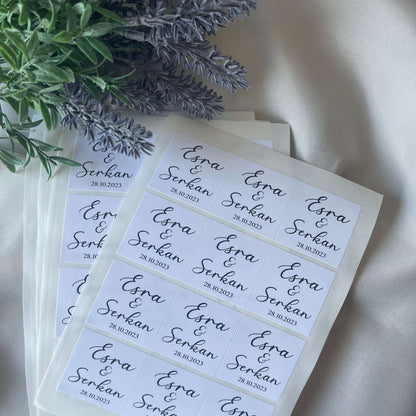 Esra
&
Serkan
28.10.2023
Esra
&
Serkan
28.10.2023
Esra
&
Serkan
28.10.2023
Esra
&
Serkan
28.10.2023
Esra
&
Serkan
28.10.2023
Esra
&
Serkan
28.10.2023
Esra
&
Serkan
28.10.2023
Esra
&
Serkan
28.10.2023
Esra
&
Serkan
28.10.2023
Esra
&
Serkan
28.10.2023
Esra
&
Serkan
Esra
&
Esra
&
Serkan
28.10.2023
Esra
&
Serkan
28.10.2023